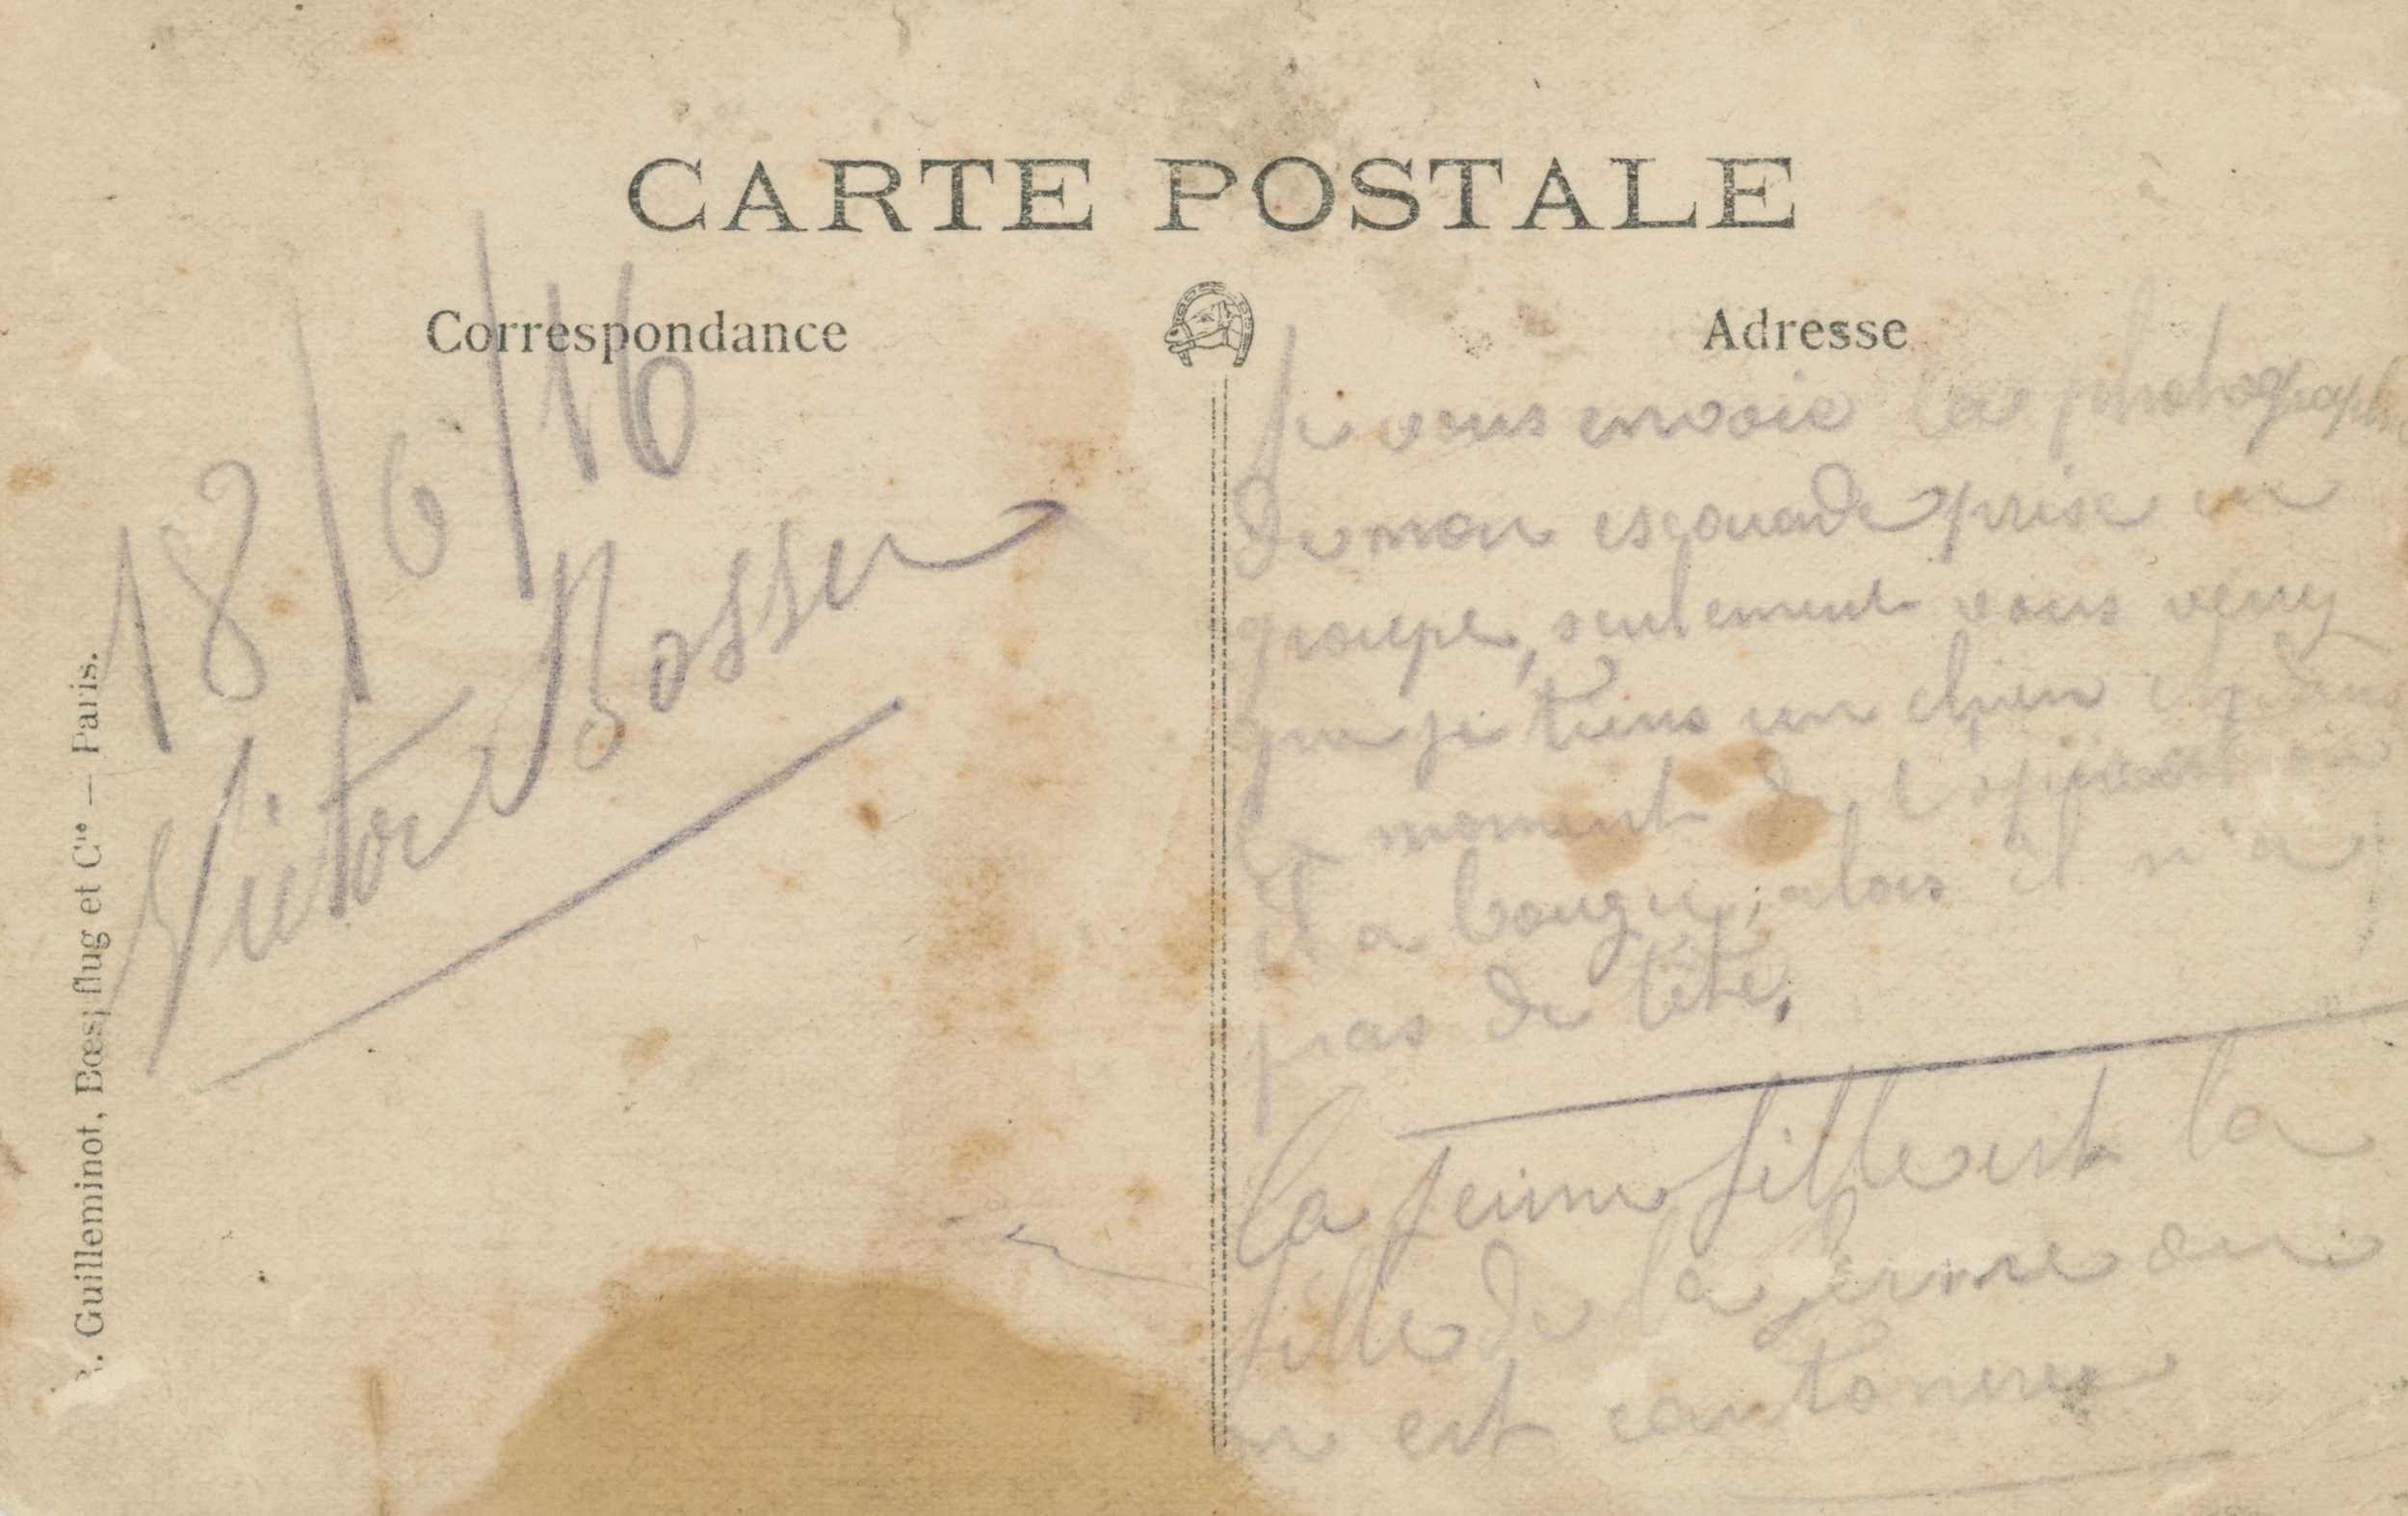 CARTE POSTALE
Correspondance
Adresse
18/6/16
Victor Bosser
R. Guilleminot, Bœspflug et Cie — Paris.
Je vous envoie la photographie
de mon escouade prise en
groupe, seulement vous verrez
que je tiens un chien et dans
le moment de l'opération
il a bougé, alors il n'a
pas de tête.
La jeune fille est la
fille de la ferme ou
on est cantonné